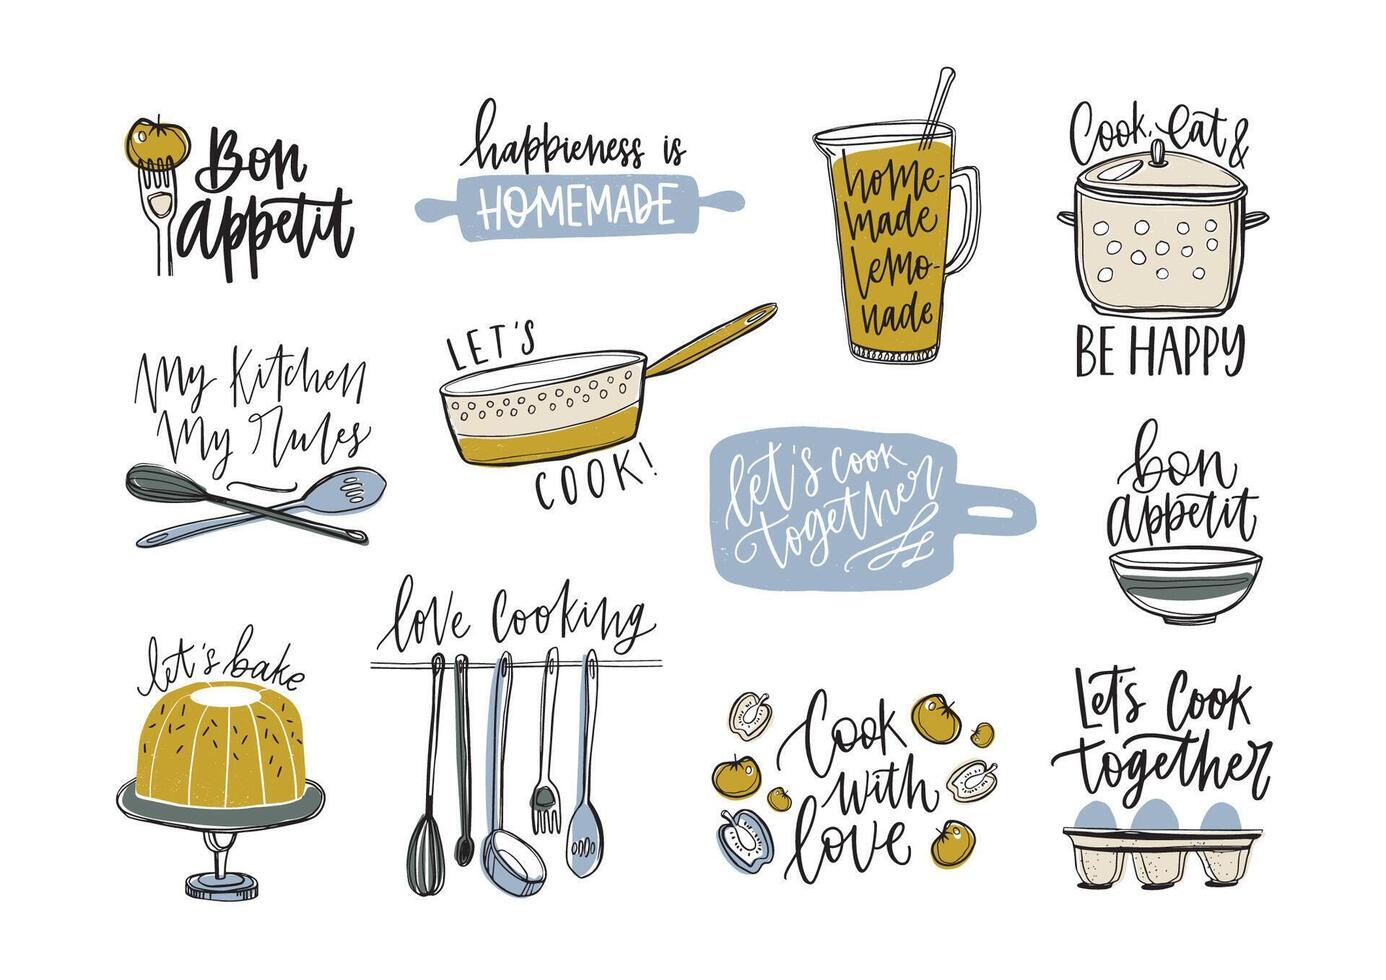 Bon
appetit
happieness is
HOMEMADE
home-
made
lemo-
nade
Cook, eat &
BE HAPPY
My Kitchen
My Rules
LET'S
COOK!
let's cook
together
bon
appetit
let's bake
love cooking
Cook
with
love
Let's Cook
together